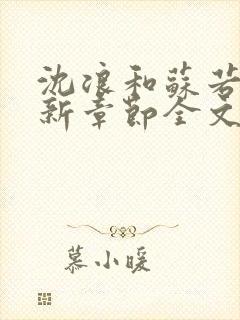 沈浪和蘇若
新章節全文
慕小暖